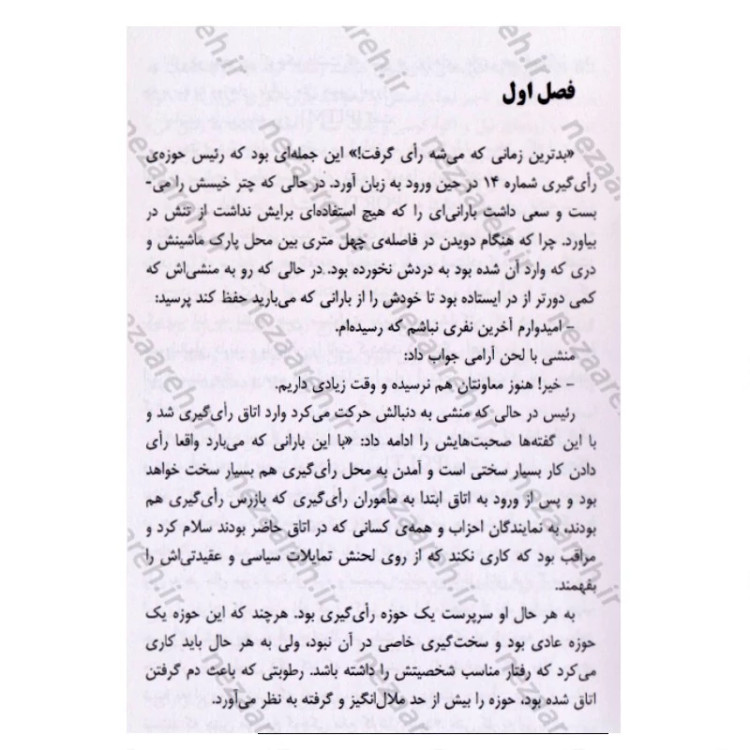 فصل اول
«بدترین زمانی که می‌شه رأی گرفت!» این جمله‌ای بود که رئیس حوزه‌ی
رأی‌گیری شماره ۱۴ در حین ورود به زبان آورد. در حالی که چتر خیسش را می-
بست و سعی داشت بارانی‌ای را که هیچ استفاده‌ای برایش نداشت از تنش در
بیاورد. چرا که هنگام دویدن در فاصله‌ی چهل متری بین محل پارک ماشینش و
دری که وارد آن شده بود به دردش نخورده بود. در حالی که رو به منشی‌اش که
کمی دورتر از در ایستاده بود تا خودش را از بارانی که می‌بارید حفظ کند پرسید:
- امیدوارم آخرین نفری نباشم که رسیده‌ام.
منشی با لحن آرامی جواب داد:
- خیر! هنوز معاونتان هم نرسیده و وقت زیادی داریم.
رئیس در حالی که منشی به دنبالش حرکت می‌کرد وارد اتاق رأی‌گیری شد و
با این گفته‌ها صحبت‌هایش را ادامه داد: «با این بارانی که می‌بارد واقعا رأی
دادن کار بسیار سختی است و آمدن به محل رأی‌گیری هم بسیار سخت خواهد
بود و پس از ورود به اتاق ابتدا به مأموران رأی‌گیری که بازرس رأی‌گیری هم
بودند، به نمایندگان احزاب و همه‌ی کسانی که در اتاق حاضر بودند سلام کرد و
مراقب بود که کاری نکند که از روی لحنش تمایلات سیاسی و عقیدتی‌اش را
بفهمند.
به هر حال او سرپرست یک حوزه رأی‌گیری بود. هرچند که این حوزه یک
حوزه عادی بود و سخت‌گیری خاصی در آن نبود، ولی به هر حال باید کاری
می‌کرد که رفتار مناسب شخصیتش را داشته باشد. رطوبتی که باعث دم گرفتن
اتاق شده بود، حوزه را بیش از حد ملال‌انگیز و گرفته به نظر می‌آورد.
nezaareh.ir
nezaareh.ir
nezaareh.ir
nezaareh.ir
nezaareh.ir
nezaareh.ir